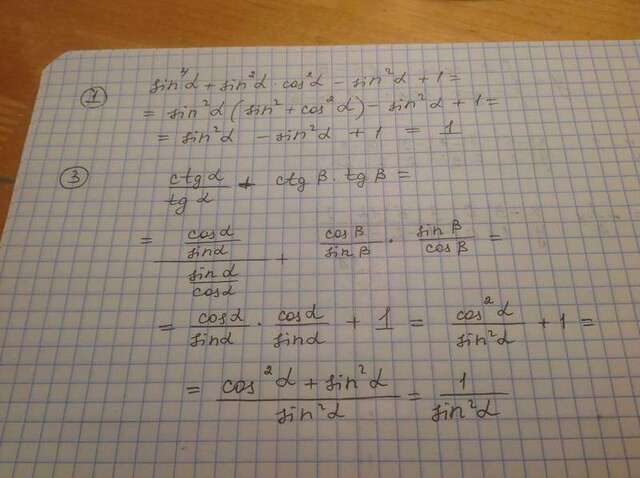 1 sin⁴α + sin²α · cos²α − sin²α + 1 =
= sin²α (sin² + cos²α) − sin²α + 1 =
= sin²α − sin²α + 1 = 1
3 ctg α / tg α + ctg β · tg β =
= (cos α / sin α) / (sin α / cos α) + cos β / sin β · sin β / cos β =
= cos α / sin α · cos α / sin α + 1 = cos²α / sin²α + 1 =
= (cos²α + sin²α) / sin²α = 1 / sin²α